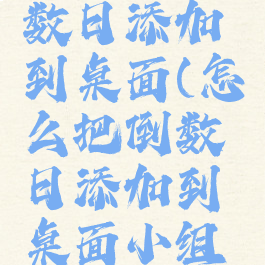 数日添加
到桌面(怎
么把倒数
日添加到
桌面小组